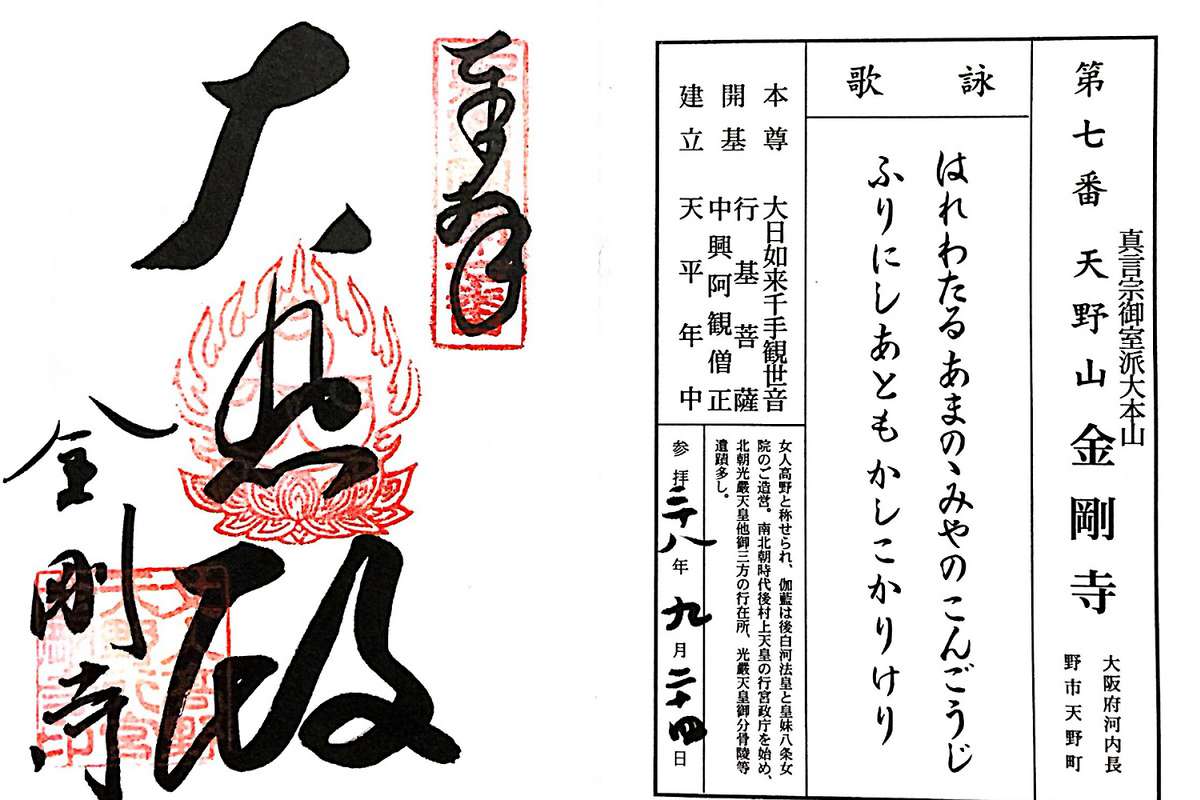 第七番 天野山 金剛寺
真言宗御室派大本山
大阪府河内長
野市天野町
詠歌
はれわたるあまのゝみやのこんごうじ
ふりにしあともかしこかりけり
本尊 大日如来千手観世音
開基 行基菩薩
中興阿観僧正
建立 天平年中
女人高野と称せられ、伽藍は後白河法皇と皇妹八条女
院のご造営。南北朝時代後村上天皇の行宮政庁を始め、
北朝光厳天皇他御三方の行在所、光厳天皇御分骨陵等
遺蹟多し。
参拝二十八年九月二十四日
奉拝
大悲殿
金剛寺